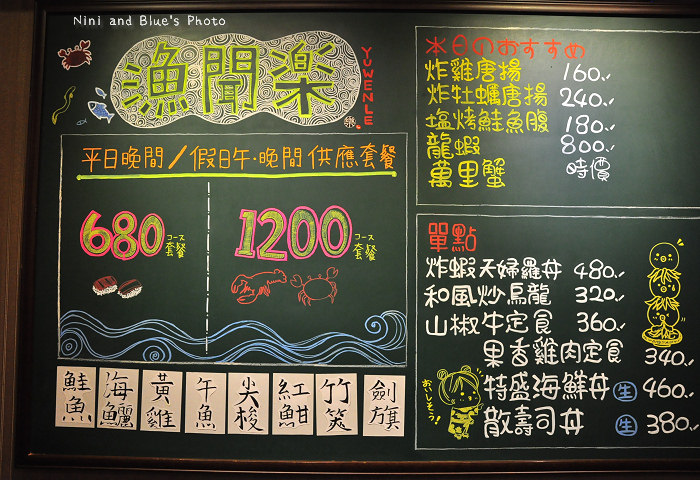 Nini and Blue's Photo
漁聞楽
YUWENLE
平日晚間/假日午·晚間供應套餐
680 コース 套餐
1200 コース 套餐
鮭魚
海鱺
黃雞
午魚
尖梭
紅魽
竹筴
劍旗
本日のおすすめ
炸雞唐揚 160.
炸牡蠣唐揚 240.
塩烤鮭魚腹 180.
龍蝦 800.
萬里蟹 時價
單點
炸蝦天婦羅丼 480.
和風炒烏龍 320.
山椒牛定食 360.
果香雞肉定食 340.
特盛海鮮丼 生 460.
散壽司丼 生 380.
おいしそう!